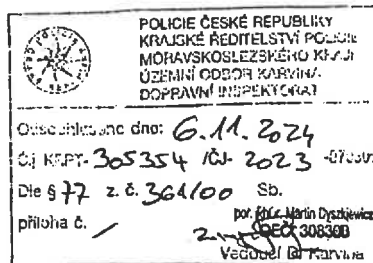 POLICIE ČESKÉ REPUBLIKY
KRAJSKÉ ŘEDITELSTVÍ POLICIE
MORAVSKOSLEZSKÉHO KRAJE
ÚZEMNÍ ODBOR KARVINÁ
DOPRAVNÍ INSPEKTORÁT
Odsouhlaseno dne: 6.11.2024
Č.j. KRPT- 305354 /ČJ- 2023
Dle § 77 z. č. 361/00 Sb.
příloha č. /
por. Martin Dyszkiewicz
OEČ: 308300
Vedoucí DI Karviná